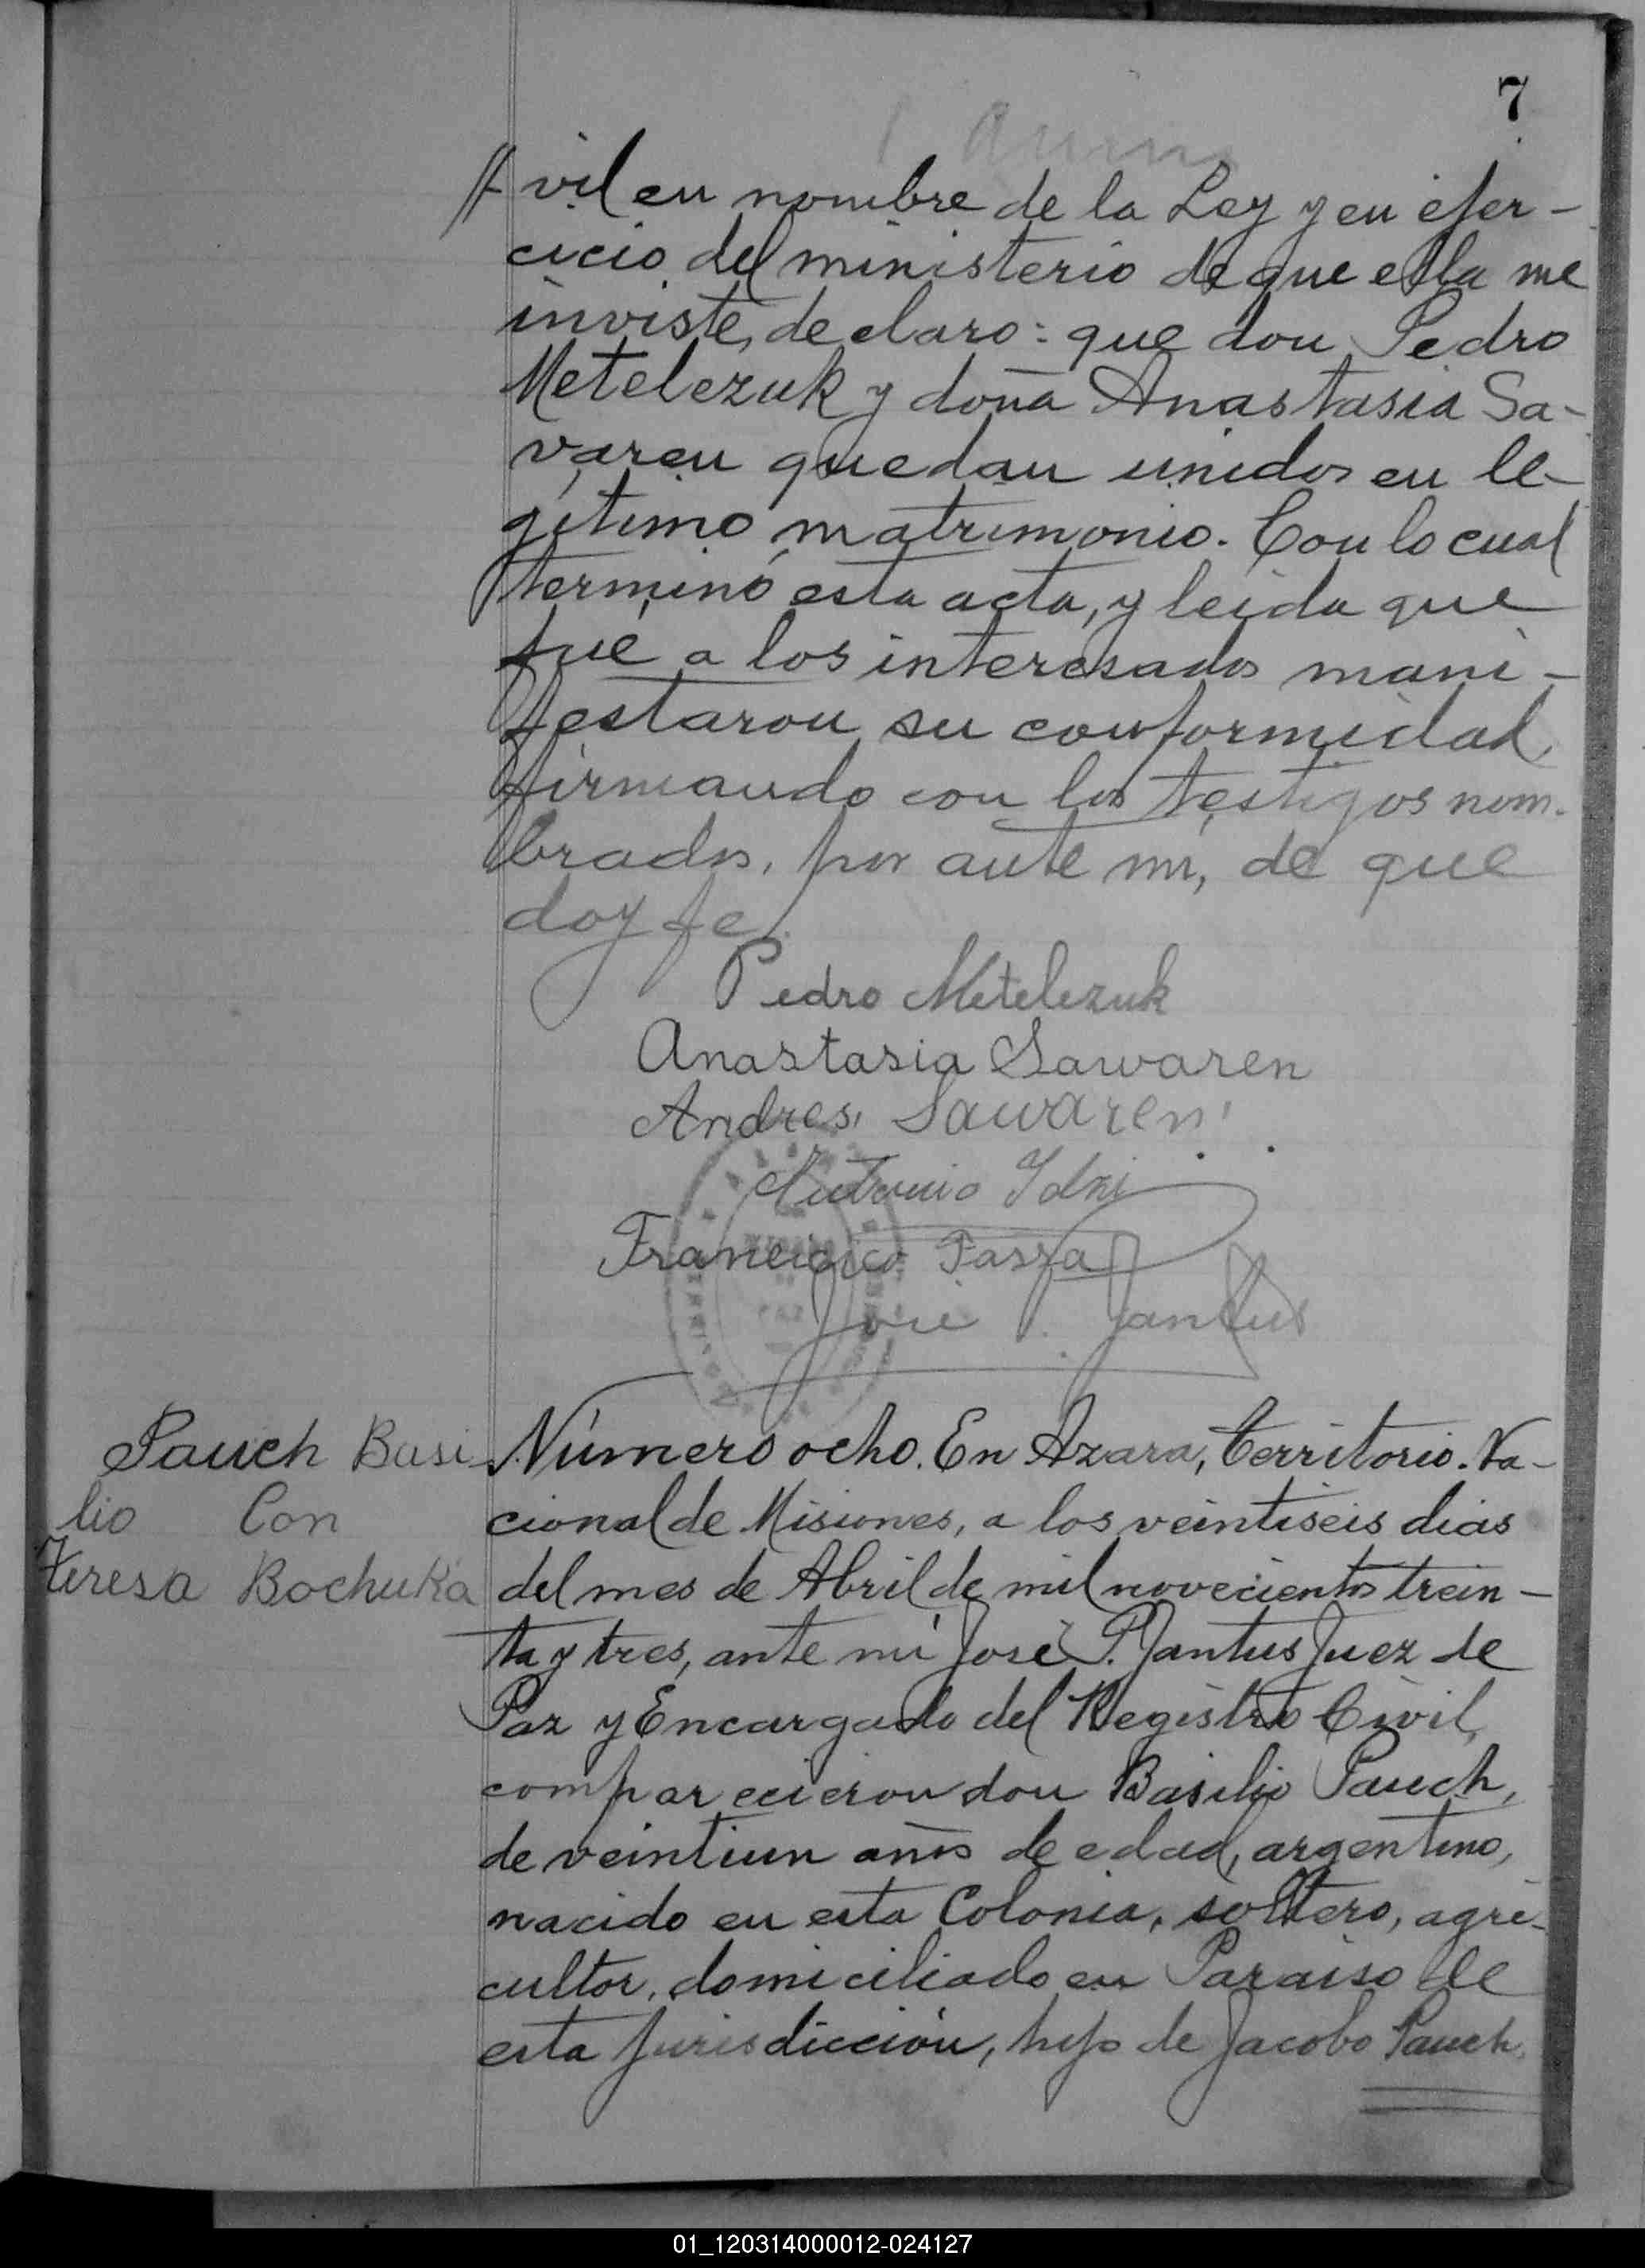 7
// vil en nombre de la Ley y en ejer-
cicio del ministerio de que ella me
inviste, declaro: que don Pedro
Metelezuk y doña Anastasia Sa-
varen quedan unidos en le-
gítimo matrimonio. Con lo cual
terminó esta acta, y leída que
fué a los interesados mani-
festaron su conformidad,
firmando con los testigos nom-
brados, por ante mi, de que
doy fe.
Pedro Metelezuk
Anastasia Sawaren
Andres Sawaren
Antonio
Francisico
José P. Jantus
Pauch Basi-
lio Con
Teresa Bochuka
Número ocho. En Azara, Territorio Na-
cional de Misiones, a los veintiseis dias
del mes de Abril de mil novecientos trein-
ta y tres, ante mi José P. Jantus Juez de
Paz y Encargado del Registro Civil,
comparecieron don Basilio Pauch,
de veintiun años de edad, argentino,
nacido en esta Colonia, soltero, agri-
cultor, domiciliado en Paraiso de
esta jurisdicción, hijo de Jacobo Pauch
01_120314000012-024127